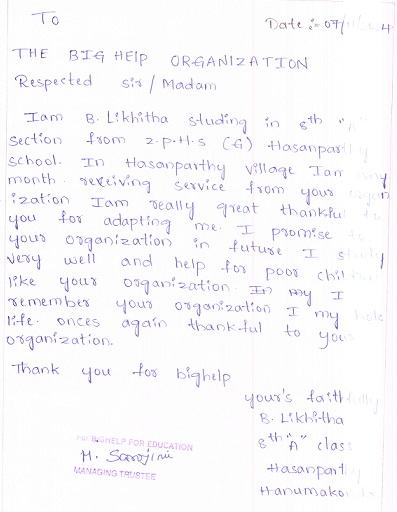 To
Date :- 07/11/2024
THE BIG HElP ORGANIZATION
Respected sir / Madam
Iam B. Likhitha studing in 8th "A"
section from z.p.H.s (G) Hasanparthy
school. In Hasanparthy village Iam every
month receiving service from your organ
ization Iam really great thankful to
you for adapting me. I promise to
your organization in future I study
very well and help for poor children
like your organization. In my I
remember your organization I my hole
life. onces again thank-ful to your
organization.
Thank you for bighelp
your's faithfully
B. Likhitha
8th "A" class
Hasanparthy
Hanumakonda
For BIGHELP FOR EDUCATION
M. Sarojini
MANAGING TRUSTEE